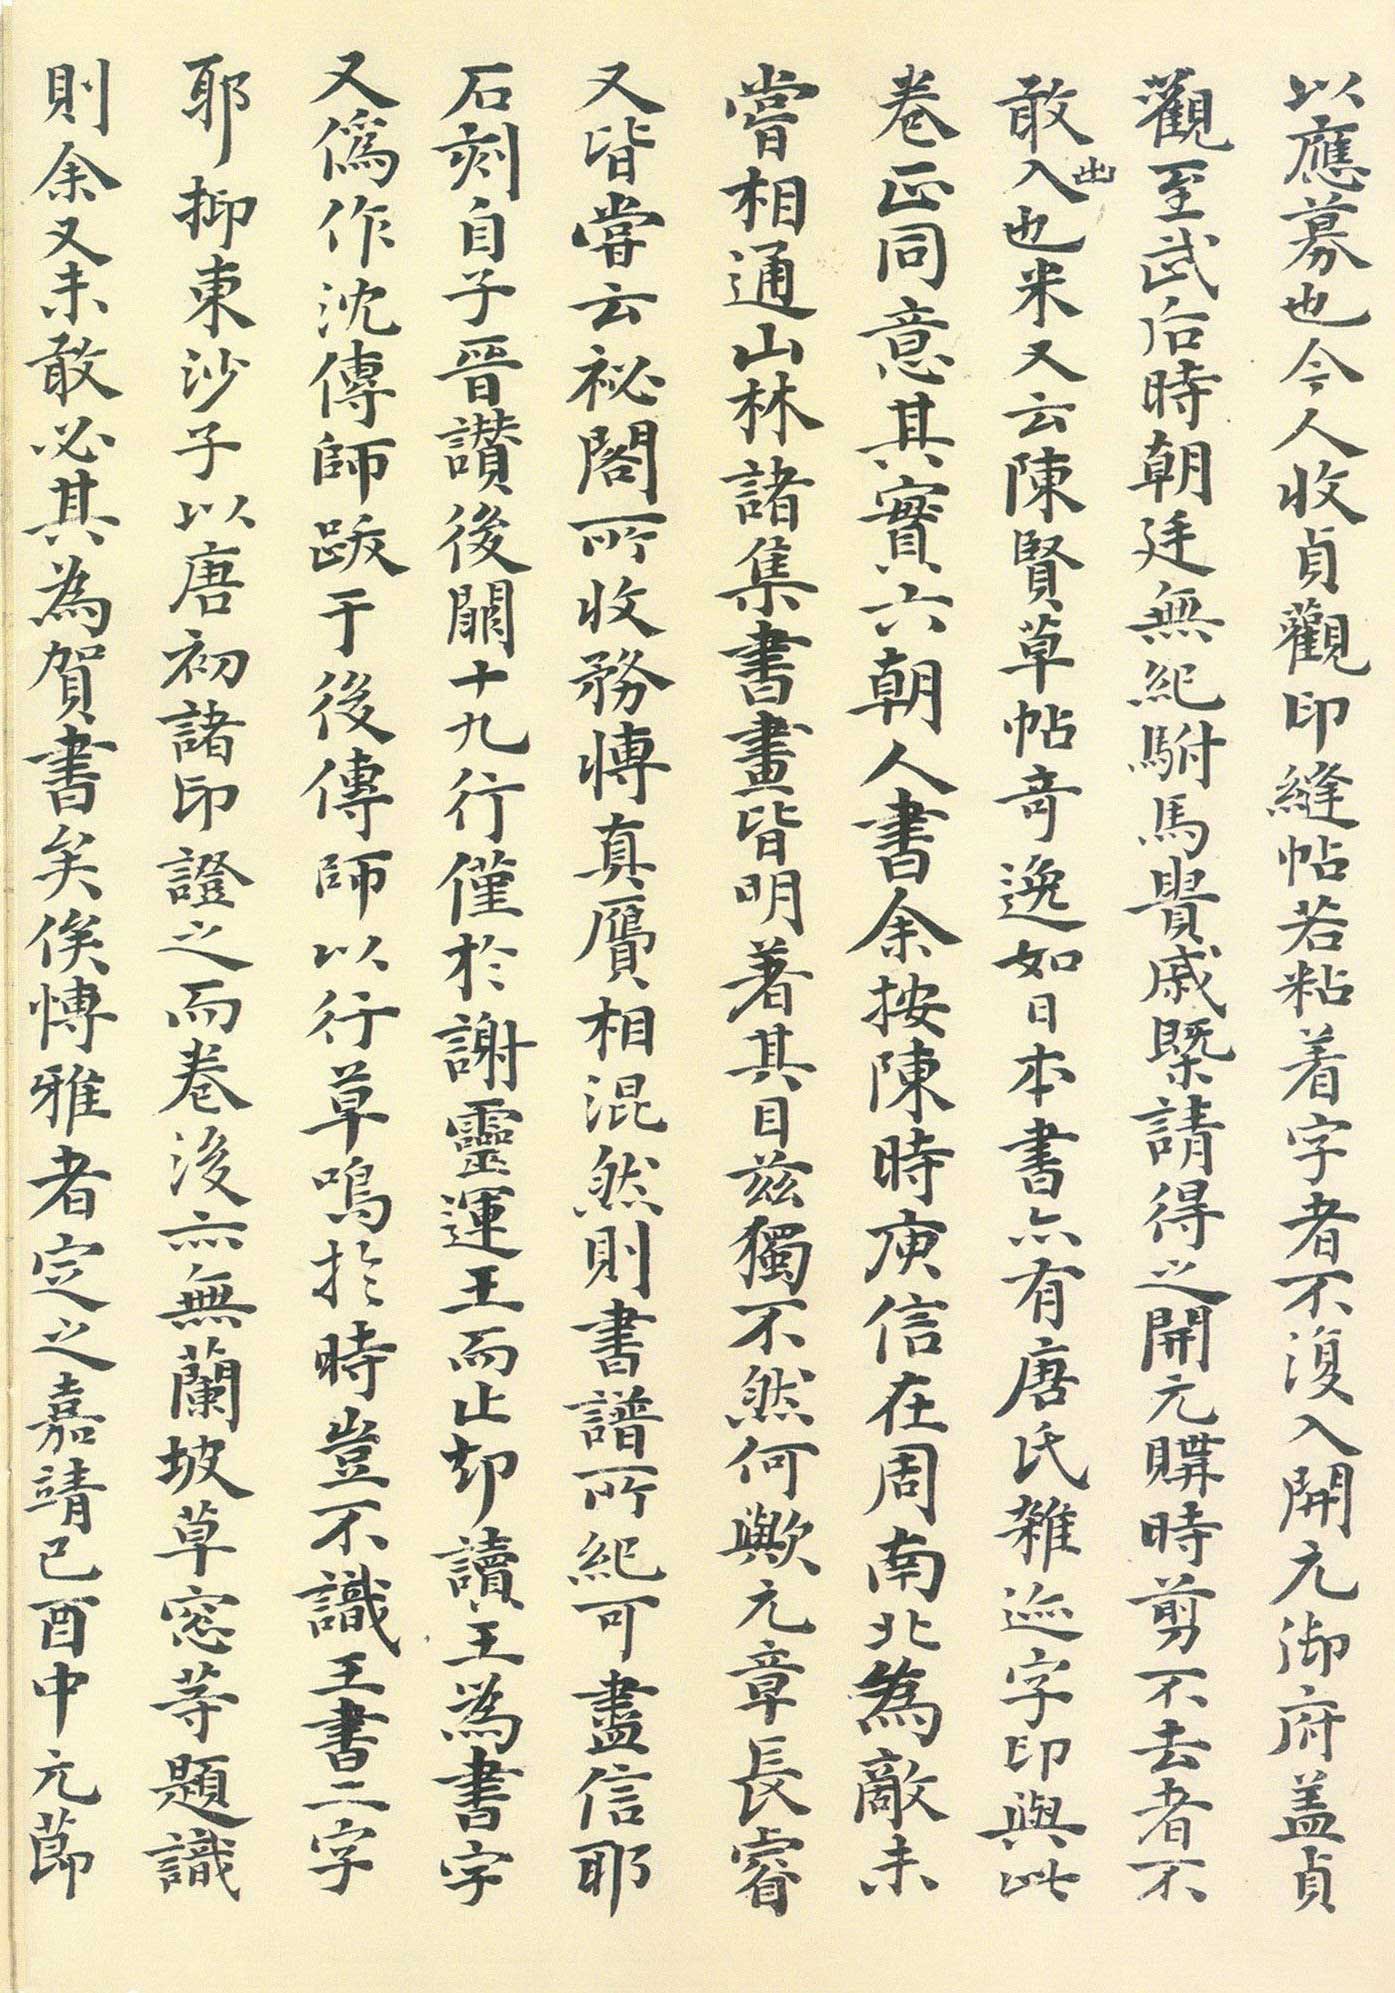 以應募也今人收貞觀印縫帖若粘着字者不復入開元御府盖貞
觀至武后時朝廷無紀駙馬貴戚曁請得之開元購時剪不去者不
敢出入也米又云陳賢草帖奇逸如日本書亦有唐氏雜迹字印與此
卷正同意其實六朝人書余按陳時庾信在周南北為敵未
嘗相通山林諸集書畫皆明著其目茲獨不然何歟元章長睿
又皆嘗云祕閣所收務博真贋相混然則書譜所紀可盡信耶
石刻自子晉讚後闕十九行僅於謝靈運王而止却讀王為書字
又僞作沈傳師跋于後傳師以行草鳴於時豈不識王書二字
耶抑東沙子以唐初諸印證之而卷後亦無蘭坡草窓等題識
則余又未敢必其為賀書矣俟博雅者定之嘉靖己酉中元節